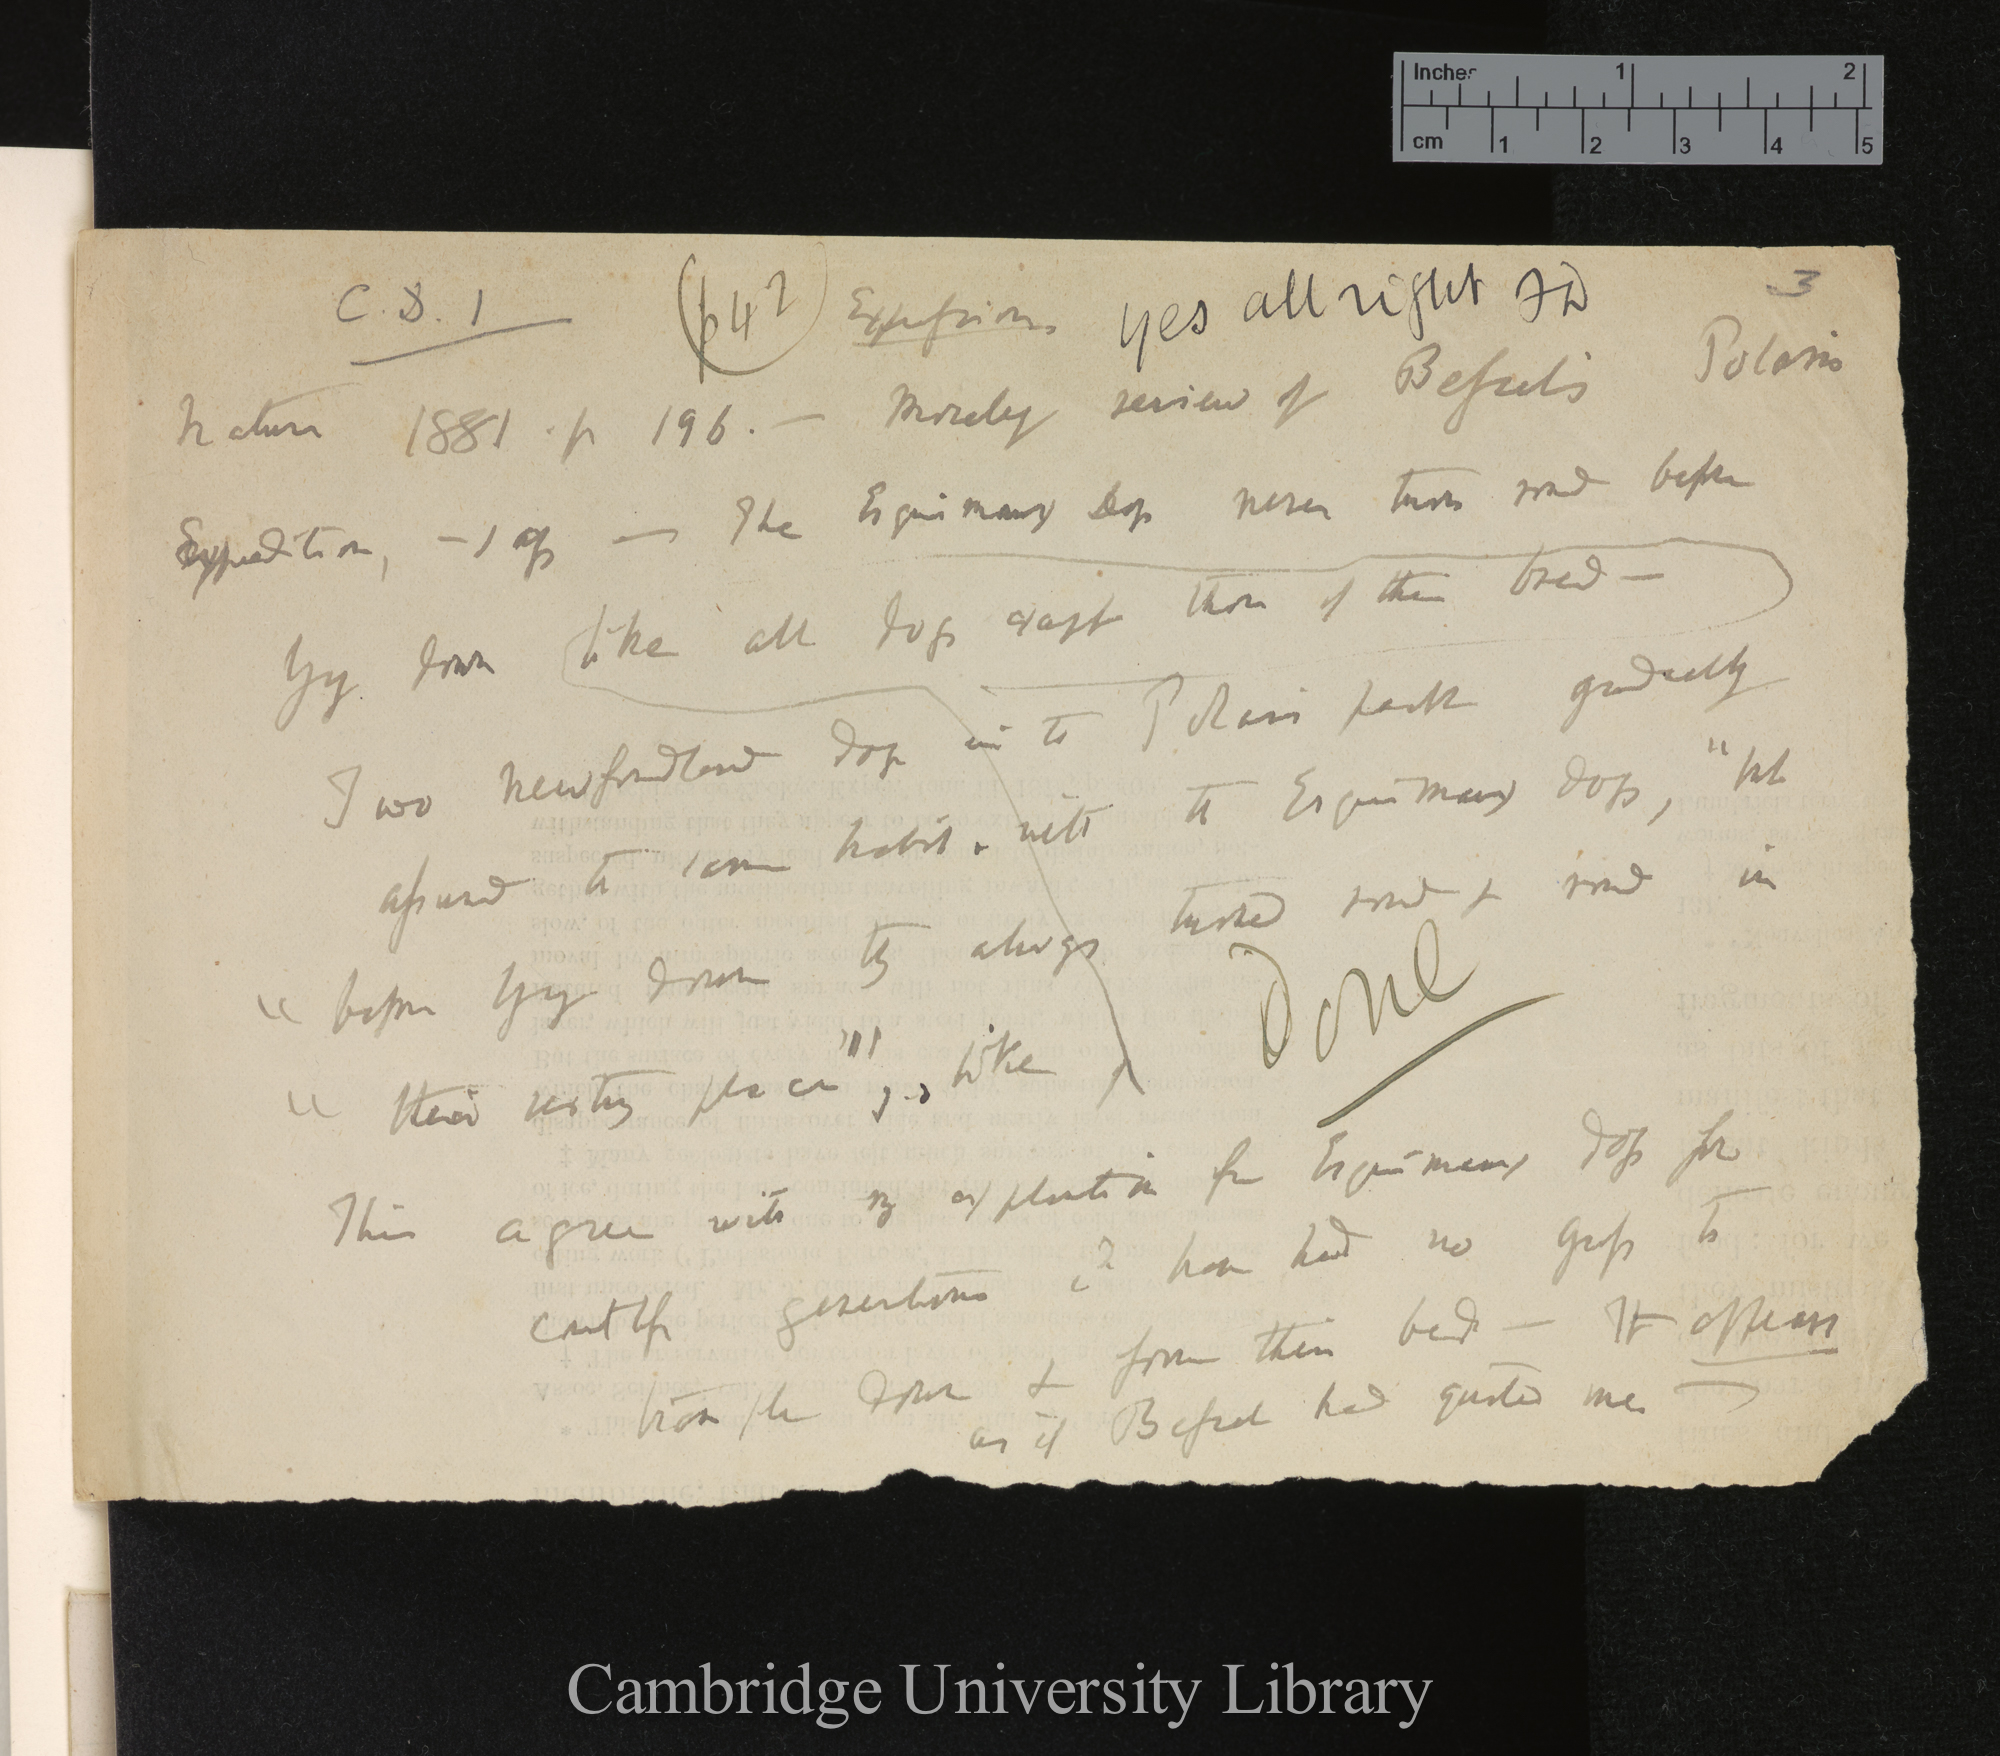 Inches 1 2
cm 1 2 3 4 5
C. D. 1 (p 42) Expression yes all right FD 3
Nature 1881. p 196. — Moseley review of Bessel's Polaris
Expedition, — says — The Esquimaux Dogs never turn round before
lying down like all dogs except those of their breed —
Two Newfoundland dogs in the Polaris pack gradually
the same habit with the Esquimaux dogs, "but
" before lying down they always turned round & round in
" their resting place", like
Done
This agrees with my explanation for Esquimaux dogs for
countless generations have had no grass to
trample down & form their beds — It appears
as if Bessel had quoted me
Cambridge University Library